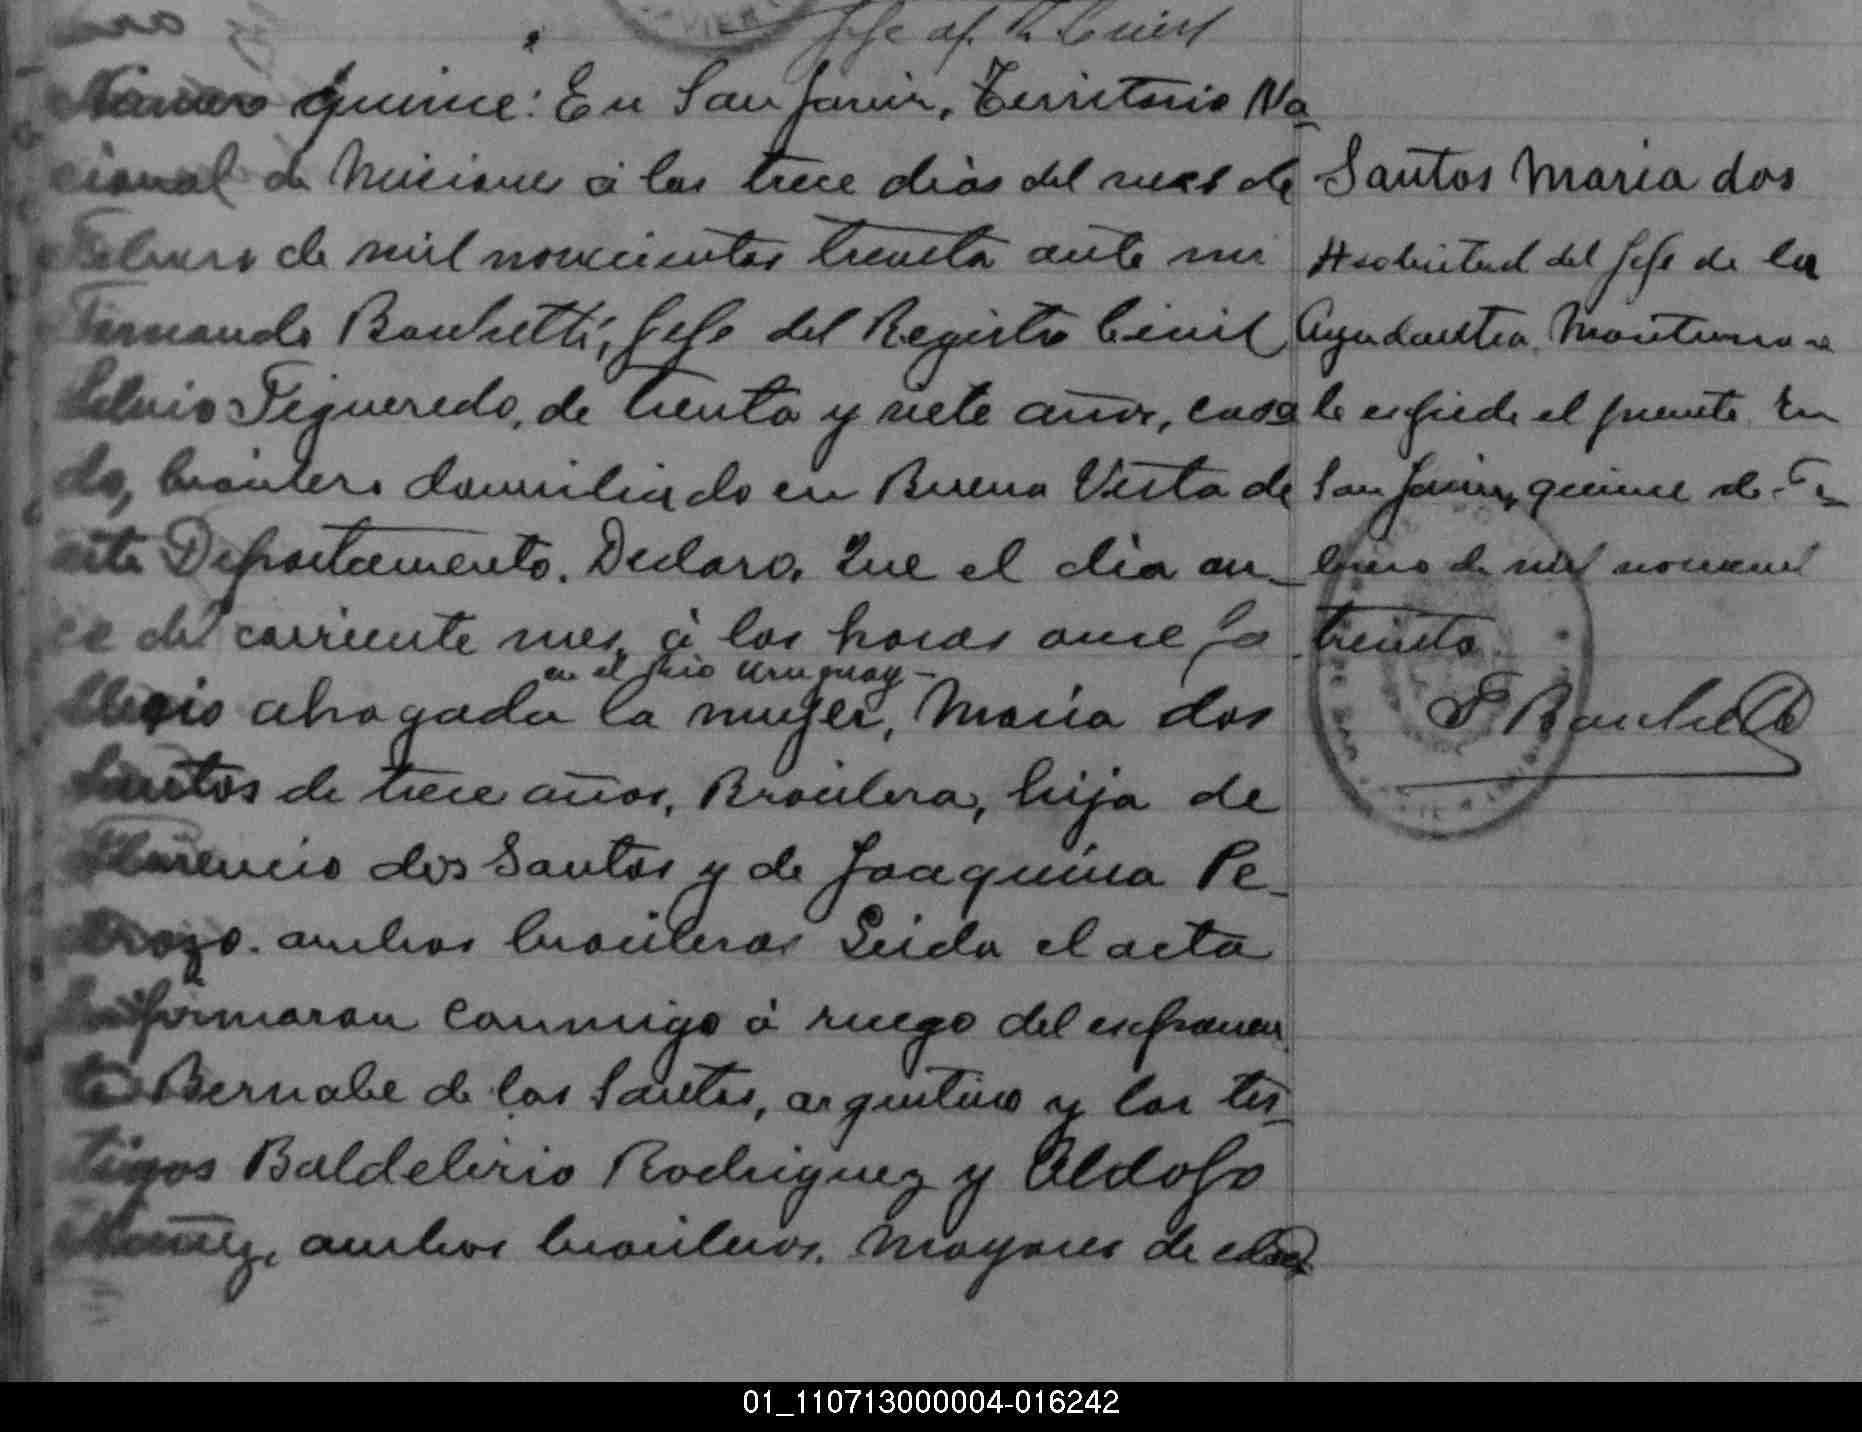 Jefe of. R. Civil
Número quince: En San Javier, Territorio Na-
cional de Misiones á los trece dias del mes de
Febrero de mil novecientos treinta ante mi
Fernando Jefe del Registro Civil
Silvio Figueredo, de treinta y siete años, casa
do, brasilero domiciliado en Buena Vista de
este Departamento. Declaro. Que el dia on-
ce del corriente mes, á las horas once fa
en el Rio Uruguay -
llecio ahogada la mujer, Maria dos
Santos de trece años, Brasilera, hija de
Florencio dos Santos y de Joaquina Pe-
drozo. ambos brasileros Leida el acta
la firmaron conmigo á ruego del esponen
te Bernabe de los Santos, argentino y los tes-
tigos Baldelirio Rodriguez y Aldolfo
ambos brasileros. Mayores de edad
Santos Maria dos
A solicitud del Jefe de la
Ayudantia
le espide el presente En
San Javier, quince de Fe-
brero de mil novecient
treinta
01_110713000004-016242